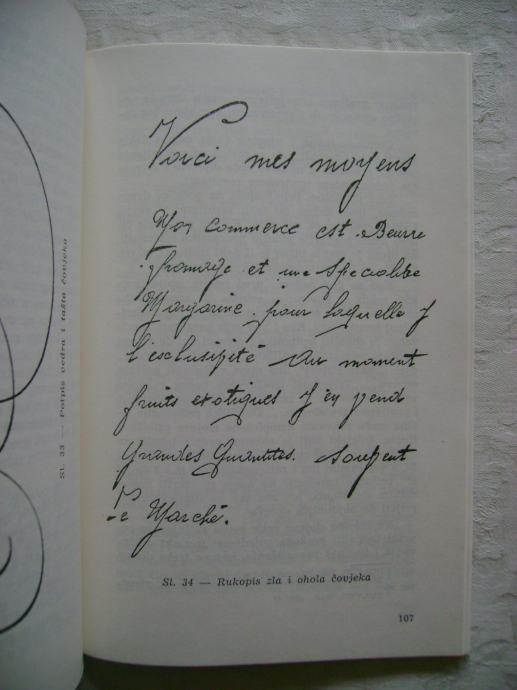 Sl. 33 — Potpis vedra i tašta čovjeka
Voici mes moyens
Mon commerce est Beurre
fromage et une Specialité
Margarine pour laquelle j
l'exclusivité Au moment
fruits exotiques J'en vend
Grandes Quantites. souvent
Le Marché.
Sl. 34 — Rukopis zla i ohola čovjeka
107